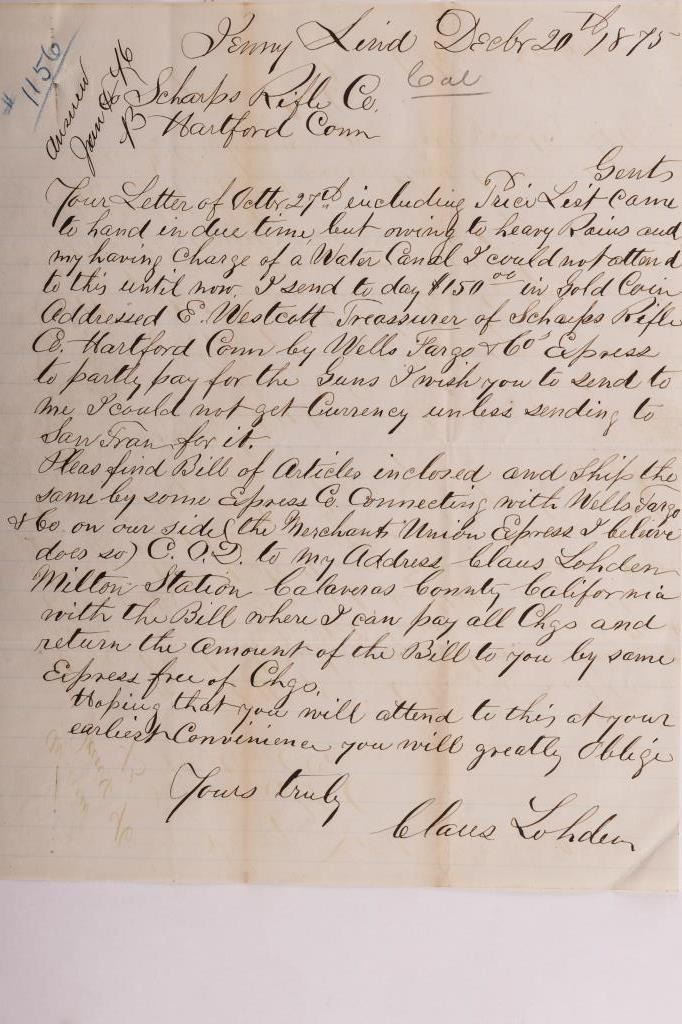 # 1156
Answerd
Jan 8 76
B
Jenny Lind Decbr 20th 1875
Cal
To Scharps Rifle Co.
Hartford Conn
Gents
Your Letter of Octbr 27th including Price List came
to hand in due time but owing to heavy Rains and
my having Charge of a Water Canal I could not attend
to this until now, I send to day $150 00 in Gold Coin
Addressed E. Westcott Treassurer of Scharps Rifle
Co. Hartford Conn by Wells Fargo & Co's Express
to partly pay for the Guns I wish you to send to
me, I could not get Currency unless sending to
San Fran for it.
Pleas find Bill of Articles inclosed and Ship the
same by some Express Co. Connecting with Wells Fargo
& Co. on our side (the Merchants Union Express I believe
does so) C. O. D. to my Address Claus Lohden
Milton Station Calaveras County California
with the Bill where I can pay all Chgs and
return the Amount of the Bill to you by same
Express free of Chgs.
Hoping that you will attend to this at your
earliest Convinience you will greatly Oblige
Yours truly
Claus Lohden